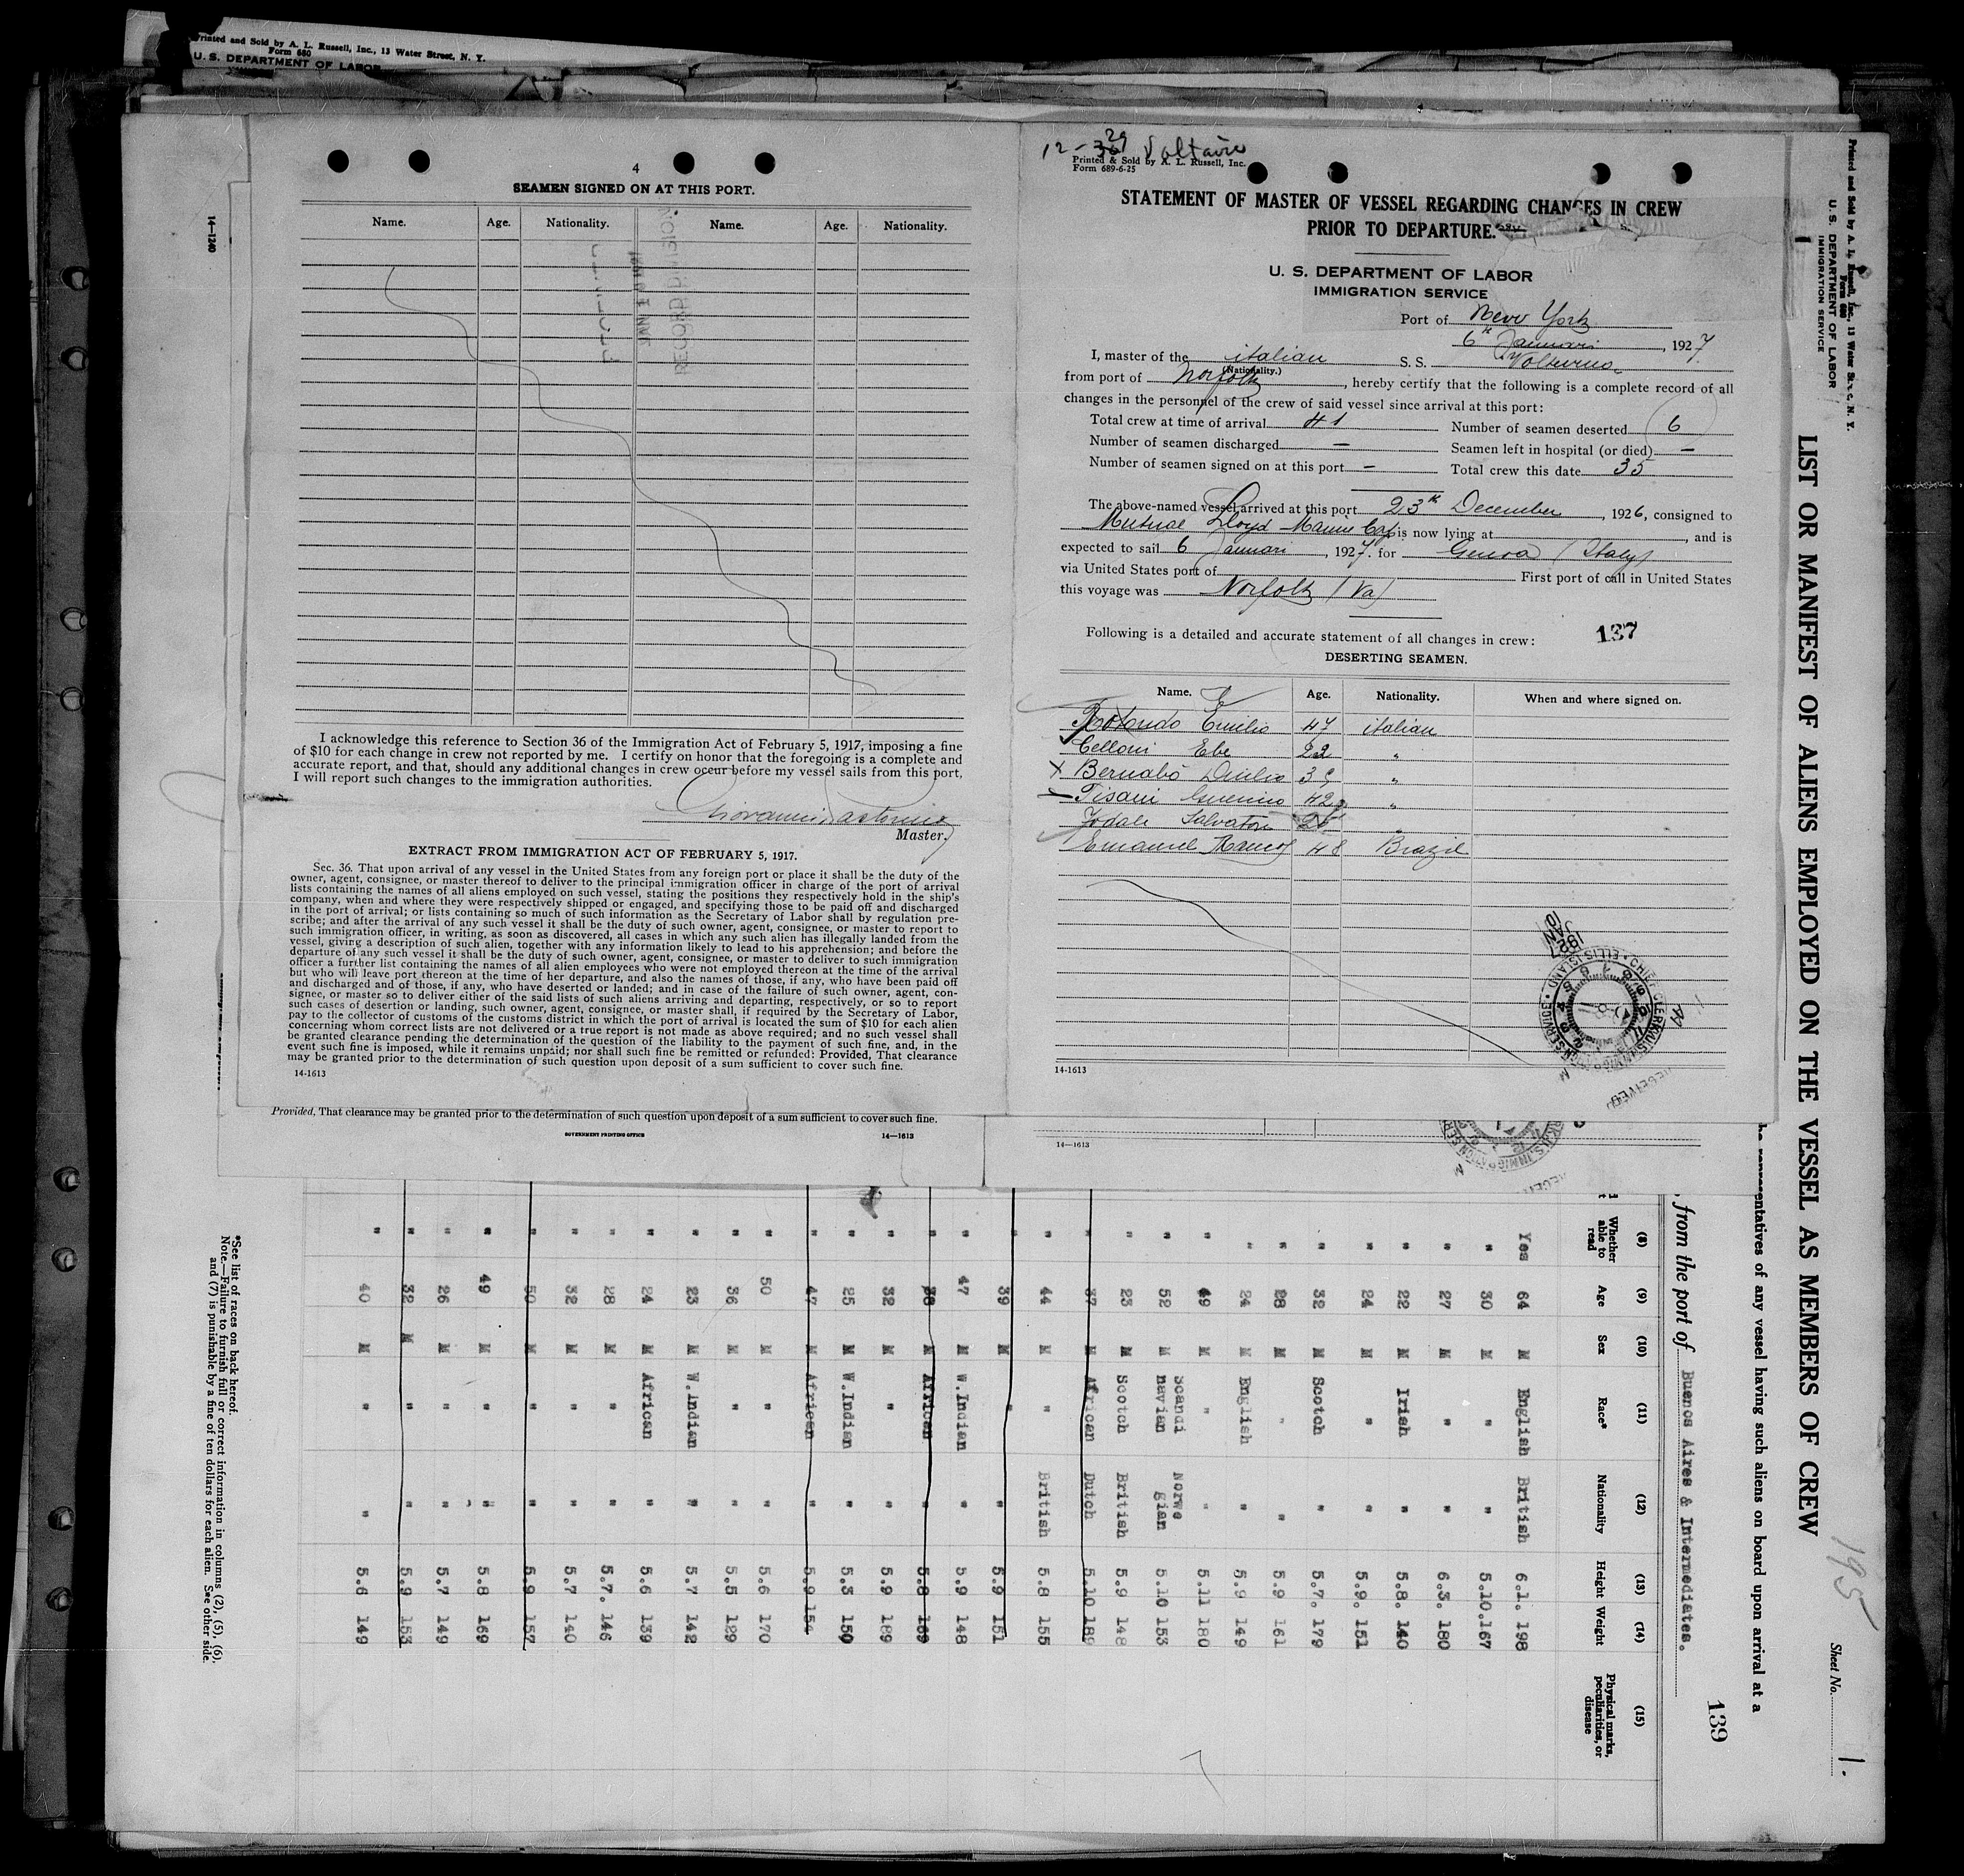 Printed and Sold by A. L. Russell, Inc., 13 Water Street, N. Y.
Form 680
U. S. DEPARTMENT OF LABOR
14—1240
4
SEAMEN SIGNED ON AT THIS PORT.
Name. Age. Nationality. Name. Age. Nationality.
I acknowledge this reference to Section 36 of the Immigration Act of February 5, 1917, imposing a fine
of $10 for each change in crew not reported by me. I certify on honor that the foregoing is a complete and
accurate report, and that, should any additional changes in crew occur before my vessel sails from this port,
I will report such changes to the immigration authorities.
Giovanni
Master.
EXTRACT FROM IMMIGRATION ACT OF FEBRUARY 5, 1917.
Sec. 36. That upon arrival of any vessel in the United States from any foreign port or place it shall be the duty of the
owner, agent, consignee, or master thereof to deliver to the principal immigration officer in charge of the port of arrival
lists containing the names of all aliens employed on such vessel, stating the positions they respectively hold in the ship's
company, when and where they were respectively shipped or engaged, and specifying those to be paid off and discharged
in the port of arrival; or lists containing so much of such information as the Secretary of Labor shall by regulation pre-
scribe; and after the arrival of any such vessel it shall be the duty of such owner, agent, consignee, or master to report to
such immigration officer, in writing, as soon as discovered, all cases in which any such alien has illegally landed from the
vessel, giving a description of such alien, together with any information likely to lead to his apprehension; and before the
departure of any such vessel it shall be the duty of such owner, agent, consignee, or master to deliver to such immigration
officer a further list containing the names of all alien employees who were not employed thereon at the time of the arrival
but who will leave port thereon at the time of her departure, and also the names of those, if any, who have been paid off
and discharged and of those, if any, who have deserted or landed; and in case of the failure of such owner, agent, con-
signee, or master so to deliver either of the said lists of such aliens arriving and departing, respectively, or so to report
such cases of desertion or landing, such owner, agent, consignee, or master shall, if required by the Secretary of Labor,
pay to the collector of customs of the customs district in which the port of arrival is located the sum of $10 for each alien
concerning whom correct lists are not delivered or a true report is not made as above required; and no such vessel shall
be granted clearance pending the determination of the question of the liability to the payment of such fine, and, in the
event such fine is imposed, while it remains unpaid; nor shall such fine be remitted or refunded: Provided, That clearance
may be granted prior to the determination of such question upon deposit of a sum sufficient to cover such fine.
14-1613
Provided, That clearance may be granted prior to the determination of such question upon deposit of a sum sufficient to cover such fine.
GOVERNMENT PRINTING OFFICE 14—1613
12-29 Voltaire
Printed & Sold by A. L. Russell, Inc.
Form 689-6-25
STATEMENT OF MASTER OF VESSEL REGARDING CHANGES IN CREW
PRIOR TO DEPARTURE.
U. S. DEPARTMENT OF LABOR
IMMIGRATION SERVICE
Port of New York
6th Januari, 1927.
I, master of the italian S. S. Volturno
(Nationality.)
from port of Norfolk, hereby certify that the following is a complete record of all
changes in the personnel of the crew of said vessel since arrival at this port:
Total crew at time of arrival 41 Number of seamen deserted 6
Number of seamen discharged — Seamen left in hospital (or died) —
Number of seamen signed on at this port — Total crew this date 35
The above-named vessel arrived at this port 23th December, 1926, consigned to
Mutual Lloyd Marine Corp is now lying at , and is
expected to sail 6 Januari, 1927. for Genoa (Italy)
via United States port of First port of call in United States
this voyage was Norfolk (Va)
Following is a detailed and accurate statement of all changes in crew: 137
DESERTING SEAMEN.
Name. Age. Nationality. When and where signed on.
Rotondo Emilio 47 italian
Celloni Ebe 22 "
X Bernabò Duilio 39 "
Pisani Guerino 42 "
Todale Salvatore "
Emanuel Marcos 48 Brazil
14-1613
1927 JAN 10
CHIEF CLERK U.S. IMMIGRATION SERVICE • ELLIS ISLAND •
RECEIVED
14—1613
Printed and Sold by A. L. Russell, Inc., 13 Water Street, N. Y.
Form 680
U. S. DEPARTMENT OF LABOR
IMMIGRATION SERVICE
LIST OR MANIFEST OF ALIENS EMPLOYED ON THE VESSEL AS MEMBERS OF CREW
195
Sheet No. 1.
representatives of any vessel having such aliens on board upon arrival at a
139
, from the port of Buenos Aires & Intermediates.
(8) (9) (10) (11) (12) (13) (14) (15)
Whether able to read Age Sex Race* Nationality Height Weight Physical marks, peculiarities, or disease
Yes 64 M English British 6.1. 198
" 30 M " " 5.10. 167
" 27 M " " 6.3. 180
" 22 M Irish " 5.8. 140
" 24 M " " 5.9. 151
" 32 M Scotch " 5.7. 179
" 28 M " " 5.9 161
" 24 M English " 5.9 149
" 49 M " " 5.11 180
" 52 M Scandi navian Norwe gian 5.10 153
" 23 M Scotch British 5.9 148
" 37 M African Dutch 5.10 189
" 44 M " British 5.8 155
" 39 M " " 5.9 151
" 47 M W.Indian " 5.9 148
" 38 M African " 5.8 169
" 32 M " " 5.9 189
" 25 M W.Indian " 5.3 150
" 47 M African " 5.9 154
" 50 M " " 5.6 170
" 36 M " " 5.5 129
" 23 M W.Indian " 5.7 142
" 24 M African " 5.6 139
" 28 M " " 5.7. 146
" 32 M " " 5.7 140
" 50 M " " 5.9 157
" 49 M " " 5.8 169
" 26 M " " 5.7 149
" 32 M " " 5.9 153
" 40 M " " 5.6 149
*See list of races on back hereof.
Note.—Failure to furnish full or correct information in columns (2), (5), (6),
and (7) is punishable by a fine of ten dollars for each alien. See other side.